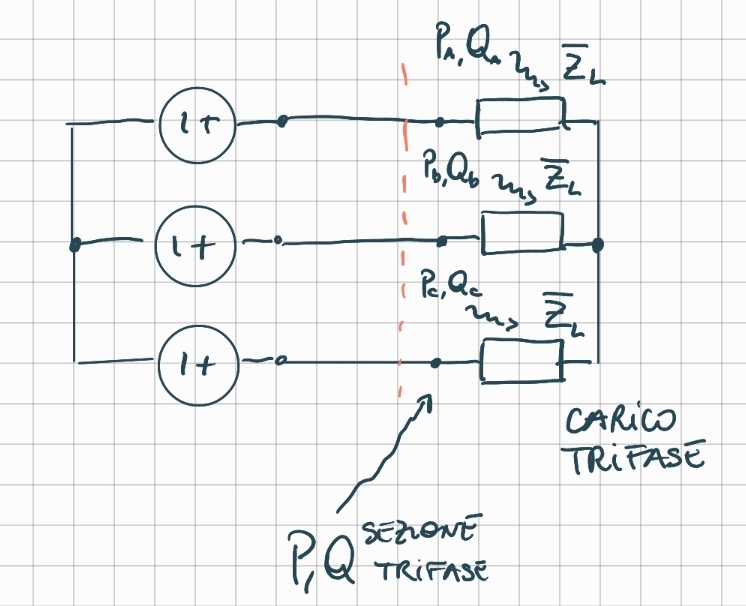 P_A, Q_A
Z̅_L
1+
P_b, Q_b
Z̅_L
1+
P_c, Q_c
Z̅_L
1+
CARICO
TRIFASE
P, Q SEZIONE
TRIFASE